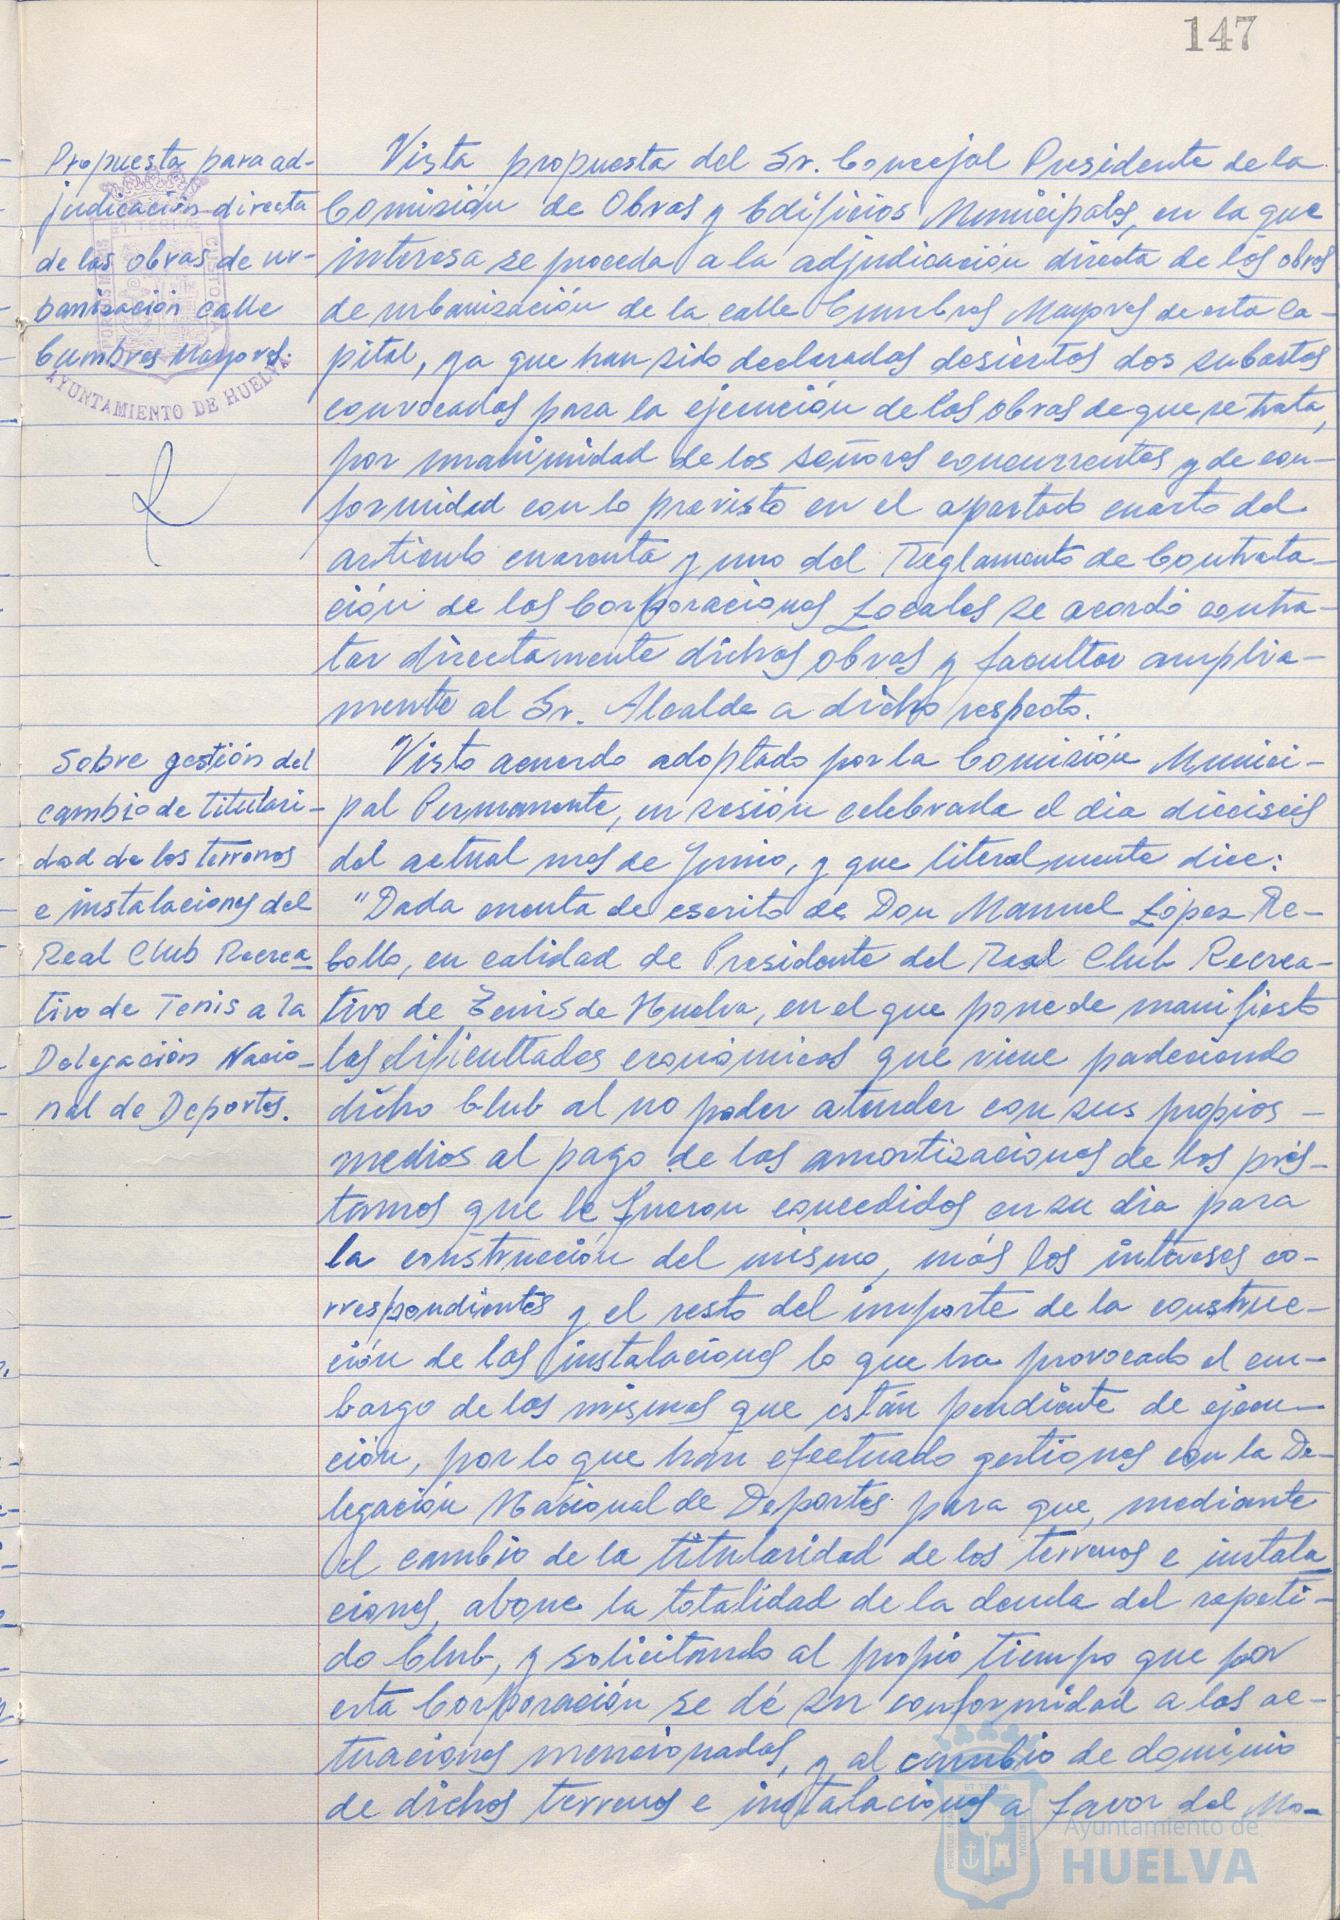 147
Propuesta para ad-
judicación directa
de las obras de ur-
banización calle
Cumbres Mayores.
AYUNTAMIENTO DE HUELVA
Vista propuesta del Sr. Concejal Presidente de la
Comisión de Obras y Edificios Municipales, en la que
interesa se proceda a la adjudicación directa de las obras
de urbanización de la calle Cumbres Mayores de esta Ca-
pital, ya que han sido declaradas desiertas dos subastas
convocadas para la ejecución de las obras de que se trata,
por unanimidad de los señores concurrentes y de con-
formidad con lo previsto en el apartado cuarto del
artículo cuarenta y uno del Reglamento de Contrata-
ción de las Corporaciones Locales se acordó contra-
tar directamente dichas obras y facultar amplia-
mente al Sr. Alcalde a dicho respecto.
Sobre gestión del
cambio de titulari-
dad de los terrenos
e instalaciones del
Real Club Recrea-
tivo de Tenis a la
Delegación Nacio-
nal de Deportes.
Visto acuerdo adoptado por la Comisión Munici-
pal Permanente, en sesión celebrada el día dieciseis
del actual mes de Junio, y que literalmente dice:
"Dada cuenta de escrito de Don Manuel López Re-
bollo, en calidad de Presidente del Real Club Recrea-
tivo de Tenis de Huelva, en el que pone de manifiesto
las dificultades económicas que viene padeciendo
dicho Club al no poder atender con sus propios -
medios al pago de las amortizaciones de los prés-
tamos que le fueron concedidos en su día para
la construcción del mismo, más los intereses co-
rrespondientes y el resto del importe de la construc-
ción de las instalaciones lo que ha provocado el em-
bargo de las mismas que están pendiente de ejecu-
ción, por lo que han efectuado gestiones con la De-
legación Nacional de Deportes para que, mediante
el cambio de la titularidad de los terrenos e instala-
ciones, abone la totalidad de la deuda del repeti-
do Club, y solicitando al propio tiempo que por
esta Corporación se dé su conformidad a las ac-
tuaciones mencionadas, y al cambio de dominio
de dichos terrenos e instalaciones a favor del Mo-
Ayuntamiento de
HUELVA